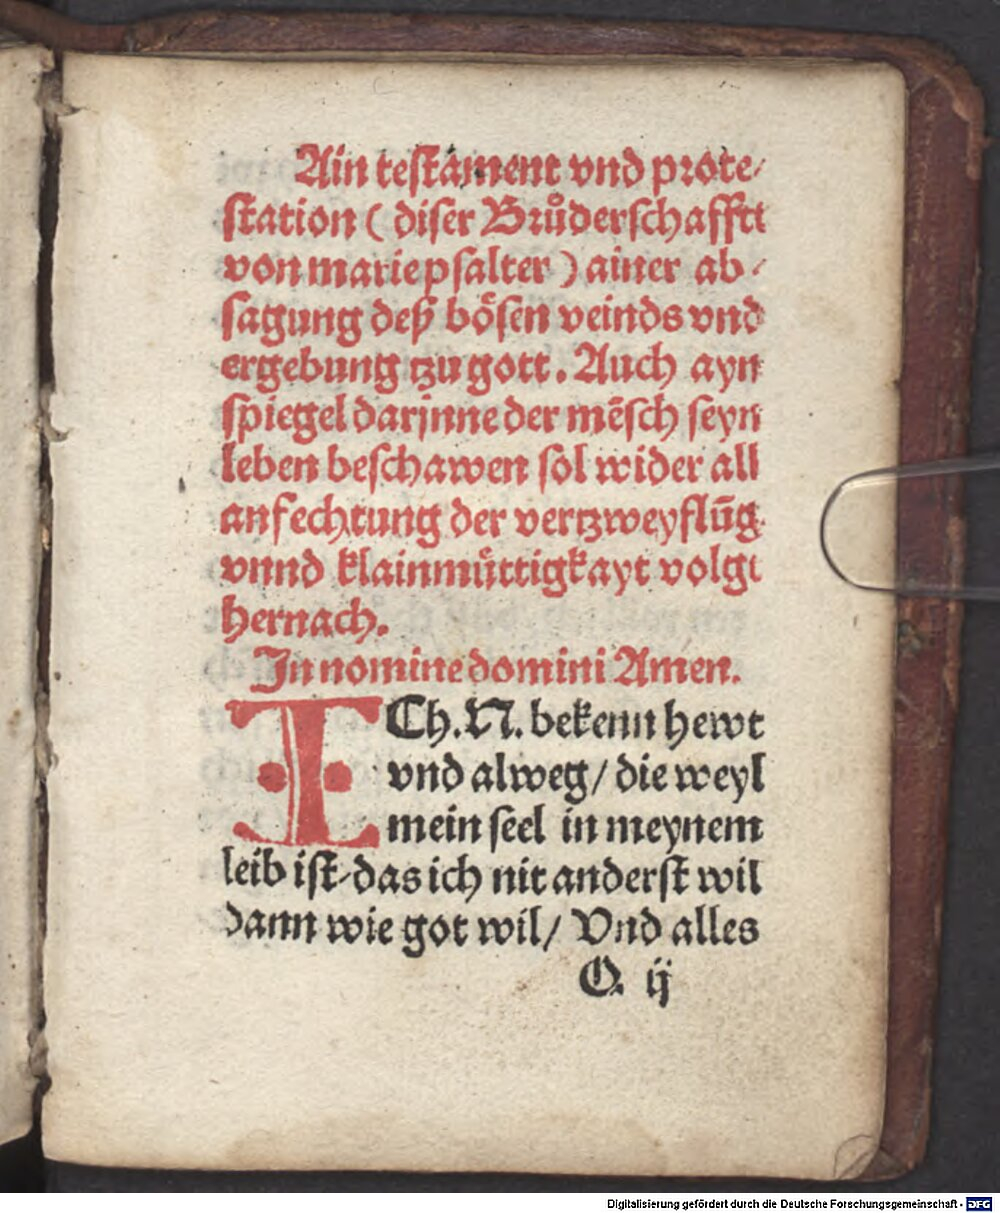 Ain testament vnd prote⸗
ſtation ( diſer Brůderſchafftt
von marie pſalter ) ainer ab⸗
ſagung deß boͤſen veinds vnd
ergebung tzu gott. Auch ayn
ſpiegel darjnne der mēſch ſeyn
leben beſchawen ſol wider all
anfechtung der vertzweyflūg
vnnd klainmuͤttigkayt volgt
hernach.
In nomine domini Amen.
ICh. N. bekenn hewt
vnd alweg/ die weyl
mein ſeel in meynem
leib iſt/ das ich nit anderſt wil
dann wie got wil/ Vnd alles
O. ij
Digitalisierung gefördert durch die Deutsche Forschungsgemeinschaft - DFG